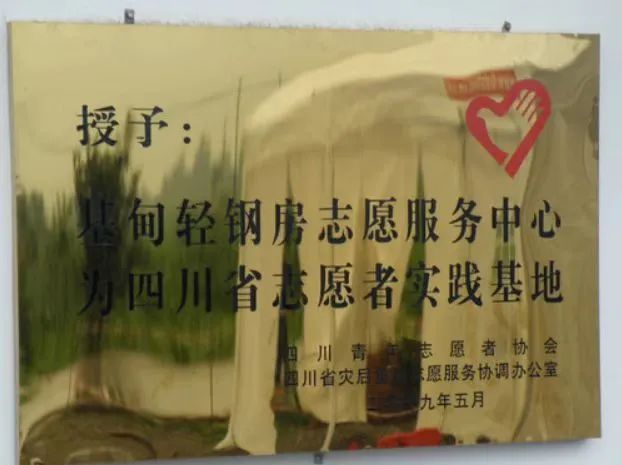 授予：
基甸轻钢房志愿服务中心
为四川省志愿者实践基地
四川青年志愿者协会
四川省灾后重建志愿服务协调办公室
二〇〇九年五月